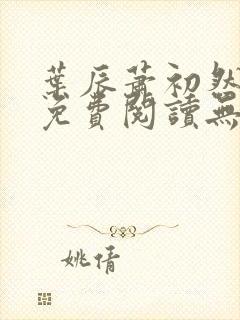 葉辰蕭初然
免費閱讀無
姚倩